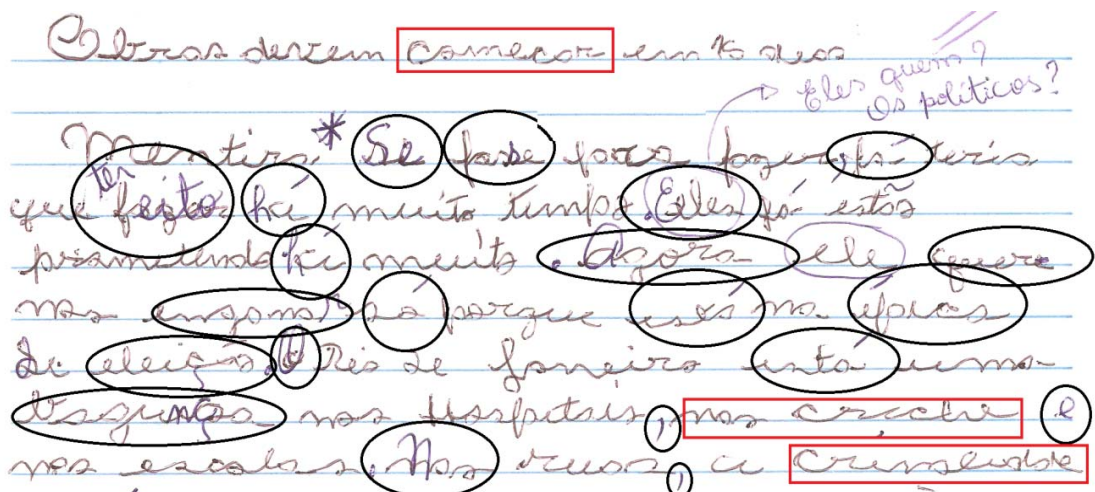 Obras devem começar em 15 dias
Eles quem?
Os políticos?
Mentira * Se fosse para fazer já teria
que ter feito há muito tempo. Eles já estão
prometendo há muito. Agora ele quere
nos enganar só porque está na época
de eleição. O Rio de Janeiro está uma
nos Hospitais, nas creche e
nas escolas. Nas ruas, a